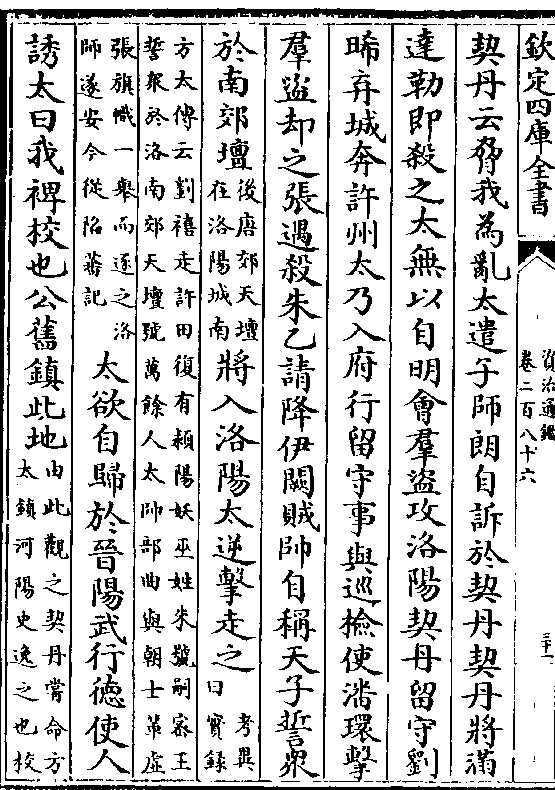 欽定四庫全書
資治通鑑
卷二百八十六
三十一
契丹云脅我為亂太遣子師朗自訴於契丹契丹將滿
達勒即殺之太無以自明會羣盜攻洛陽契丹留守劉
晞弃城奔許州太乃入府行留守事與巡檢使潘環擊
羣盜却之張遇殺朱乙請降伊闕賊帥自稱天子誓衆
於南郊壇後唐郊天壇在洛陽城南將入洛陽太逆擊走之考異曰實録
方太傳云劉禧走許田復有潁陽妖巫姓朱號嗣密王
誓衆於洛南郊天壇號萬餘人太帥部曲與朝士輩虚
張旗幟一舉而逐之洛師遂安今從陷蕃記太欲自歸於晉陽武行德使人
誘太曰我裨校也公舊鎮此地由此觀之契丹嘗命方太鎮河陽史逸之也校